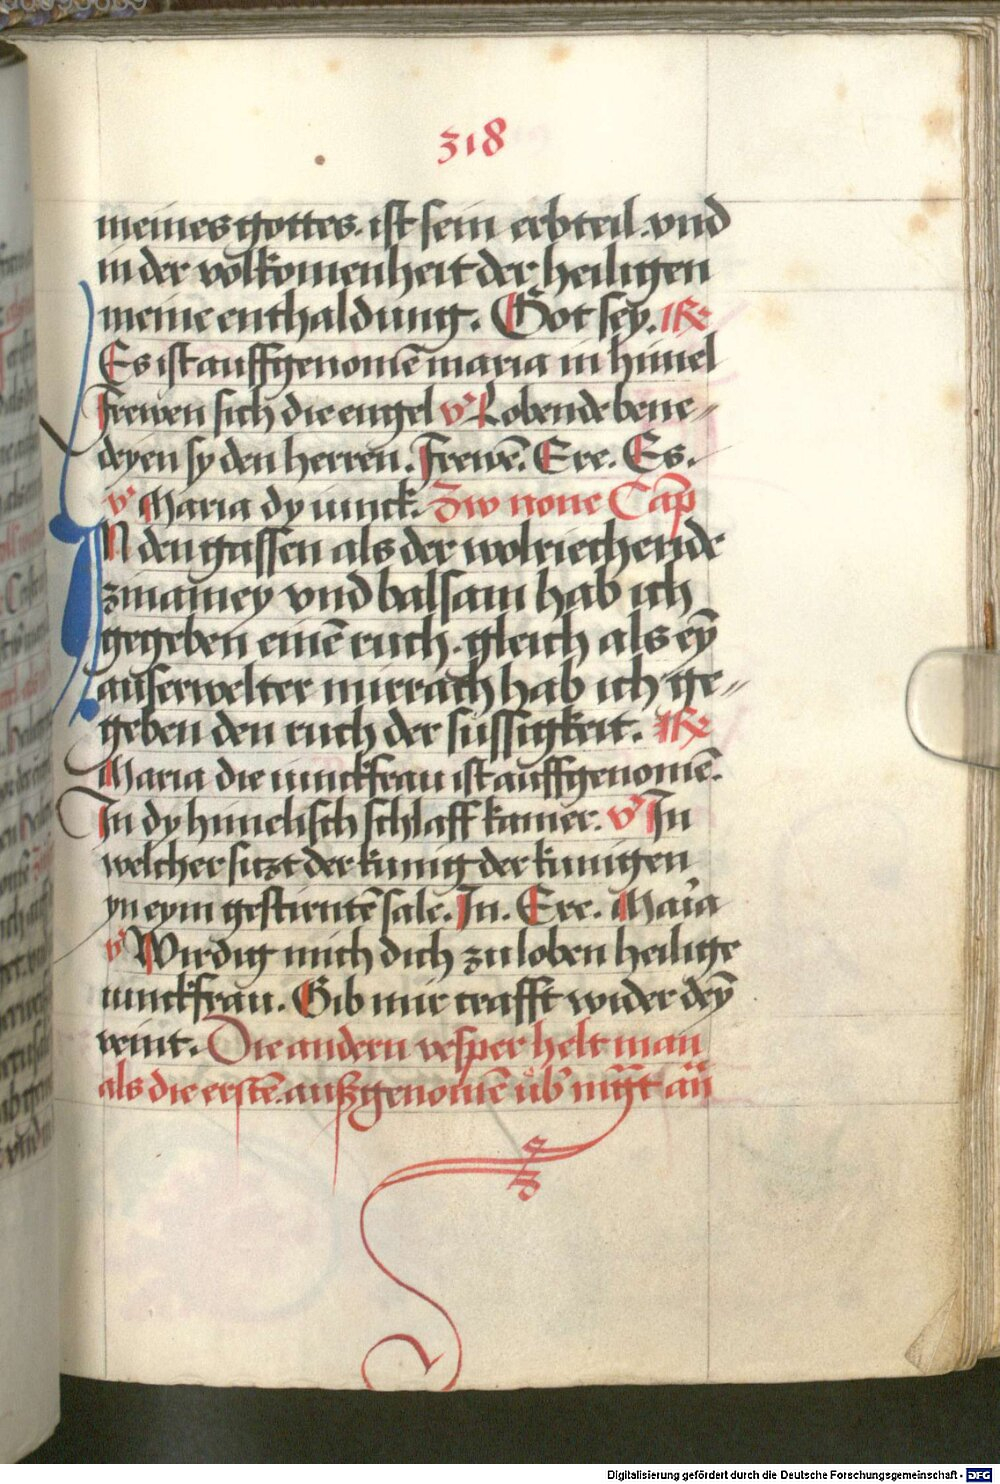 318
meines gottes. ist sein erbteil. vnd
in der volkomenheit der heiligen
meine enthaldung. Got sey. R
Es ist auffgenomē maria in himel
frewen sich die engel v Lobende bene„
deyen sy den herren. frewē. Ere. Es.
v Maria dy iunck. Zw none Cap̄
IN den gassen als der wolriechende
zinamey vnd balsam hab ich
gegeben einē ruch. gleich als eȳ
auserwelter mirrach hab ich ge„
geben den ruch der sussigkeit. R
Maria die iunckfrau ist auffgenomē.
In dy himelisch schlaff kamer. v In
welcher sitzt der kunig der kunigen
yn eym gestirntē sale. In. Ere. Maria
v Wirdig mich dich zu loben heilige
iunckfrau. Gib mir crafft wider deȳ
veint. Die andern vesper helt man
als die erstē. außgenomē
Digitalisierung gefördert durch die Deutsche Forschungsgemeinschaft - DFG